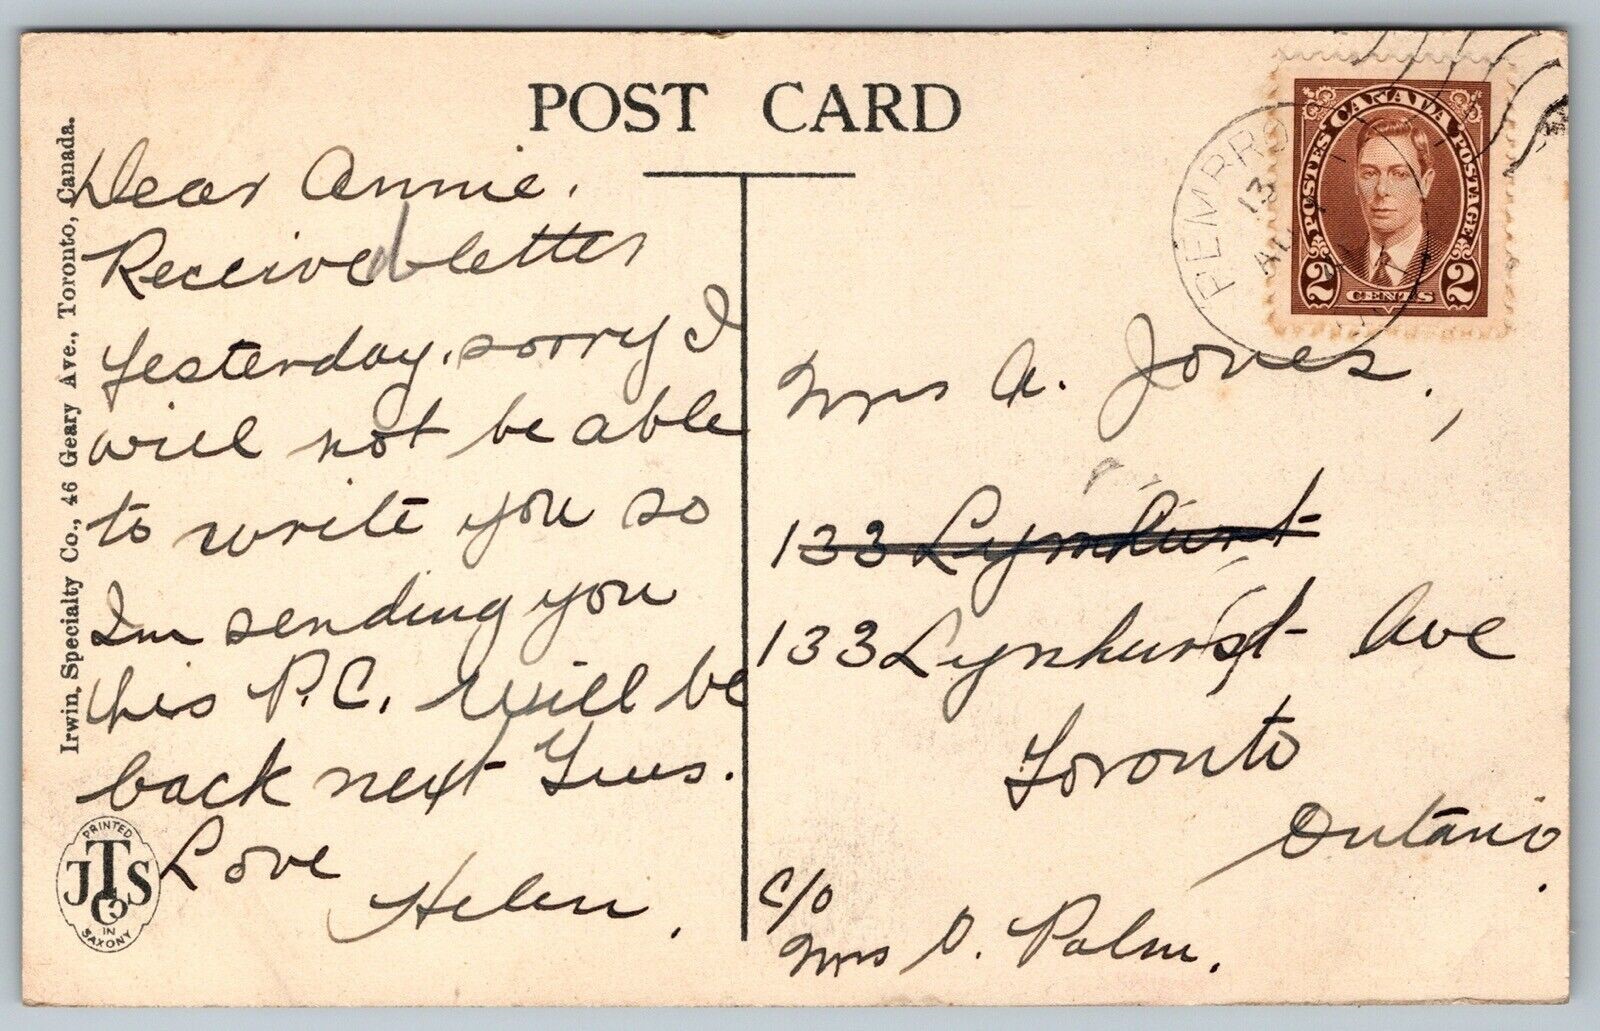 POST CARD
Irwin, Specialty Co., 46 Geary Ave., Toronto, Canada.
Dear Annie.
Received letter
yesterday, sorry I
will not be able
to write you so
Im sending you
this P.C. Will be
back next Tues.
Love
Helen.
PRINTED
JTS
Co
IN
SAXONY
PEMBRO
13
POSTES CANADA POSTAGE
2 CENTS 2
Mrs A. Jones,
133 Lynhurst
133 Lynhurst Ave
Toronto
Ontario.
c/o
Mrs O. Palm.